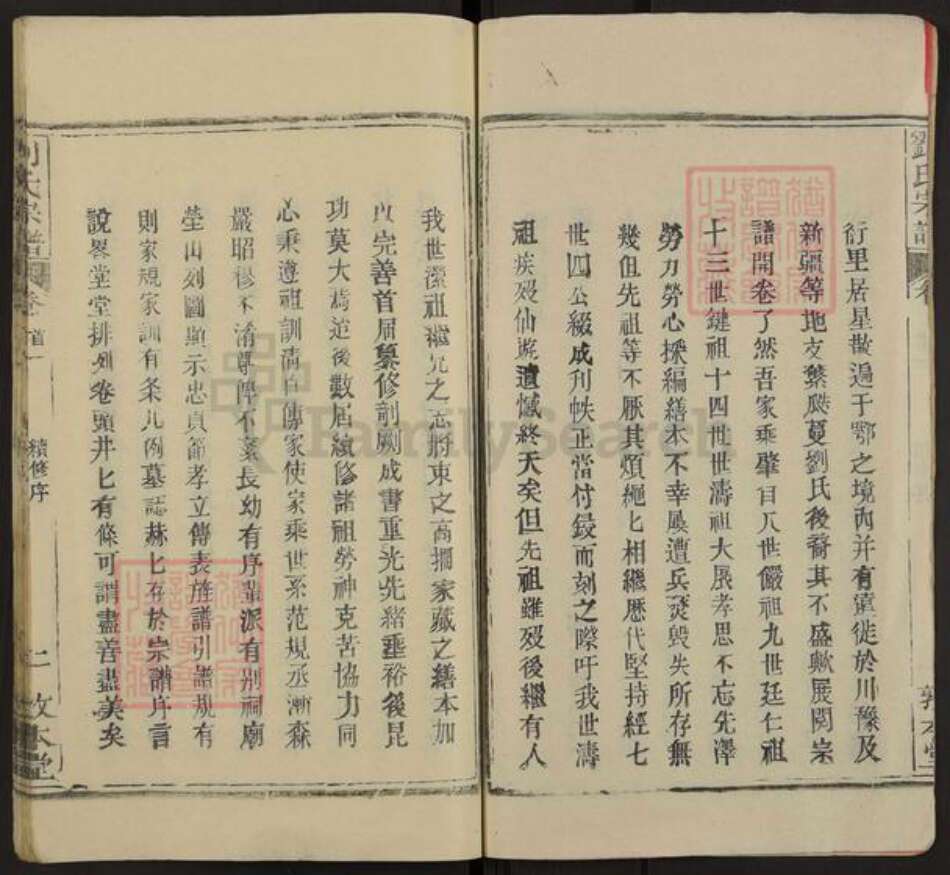 劉氏宗譜 卷
衍里居星散遍于鄂之境內并有遷徙於川豫及
新疆等地支繁瓞蔓劉氏後裔其不盛歟展閱宗
譜開卷了然吾家乘肇自八世儼祖九世廷仁祖
十三世鍵祖十四世世濤祖大展孝思不忘先澤
勞力勞心採編繕本不幸屢遭兵燹毀失所存無
幾但先祖等不厭其煩繩匕相繼歷代堅持經七
世四公綴成刊帙正當付鋟而刻之際吁我世濤
祖疾歿仙遊遺憾終天矣但先祖雖歿後繼有人
敦本堂
我世瀠祖繼兄之志將束之高擱家藏之繕本加
以完善首屆纂修剞劂成書重光先緒垂裕後昆
功莫大焉迨後數屆續修諸祖勞神克苦協力同
心秉遵祖訓清白傳家使家乘世系范規丞漸森
嚴昭穆不淆尊卑不紊長幼有序輩派有別祠廟
塋山列圖顯示忠貞節孝立傳表旌譜引譜規有
則家規家訓有条凡例墓誌赫匕在於宗譜序言
說畧堂堂排列卷頭井匕有條可謂盡善盡美矣
劉氏宗譜 卷首一 續修序 二 敦本堂
FamilySearch